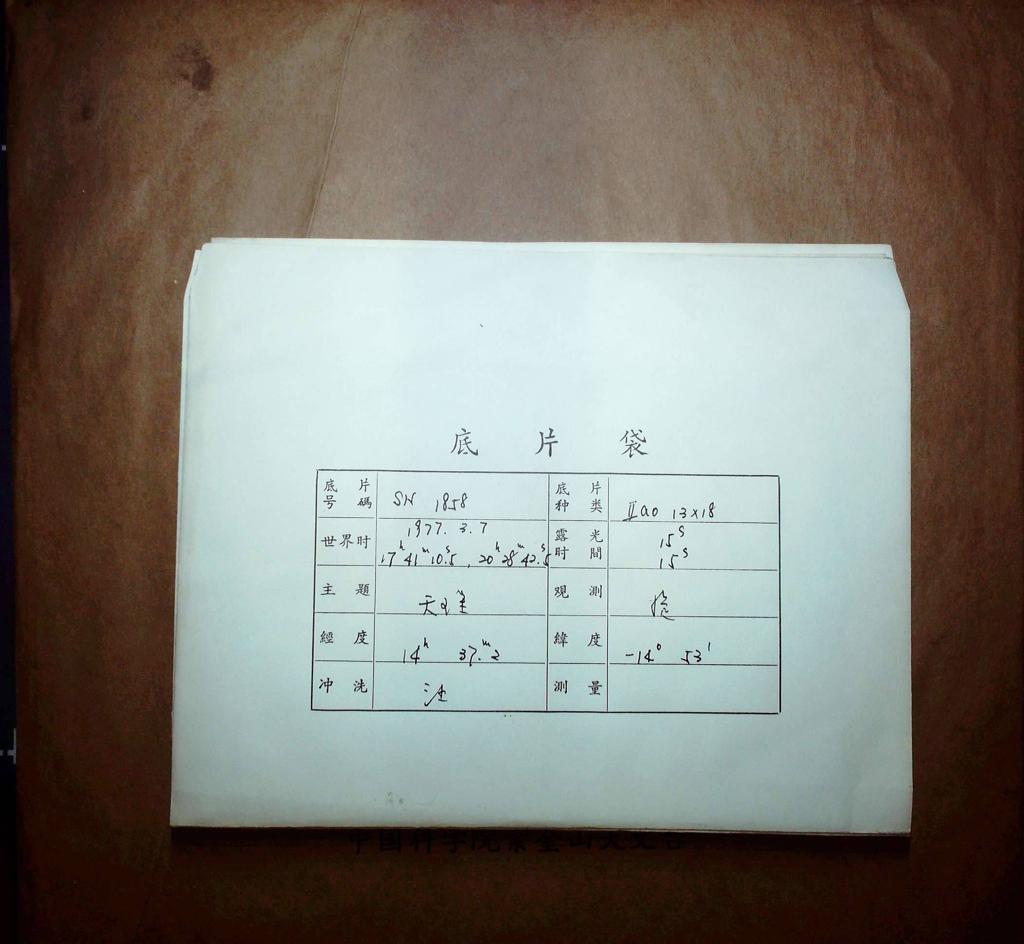 底 片 袋
底 片
号 碼
SN 1858
底 片
种 类
IIao 13×18
世界时
1977. 3. 7
17h 41m 10.s5 , 20h 28m 42.s5
露 光
时 間
15s
15s
主 題
天王星
观 测
經 度
14h 37.m2
緯 度
-14° 53'
冲 洗
测 量
中国科学院紫金山天文台